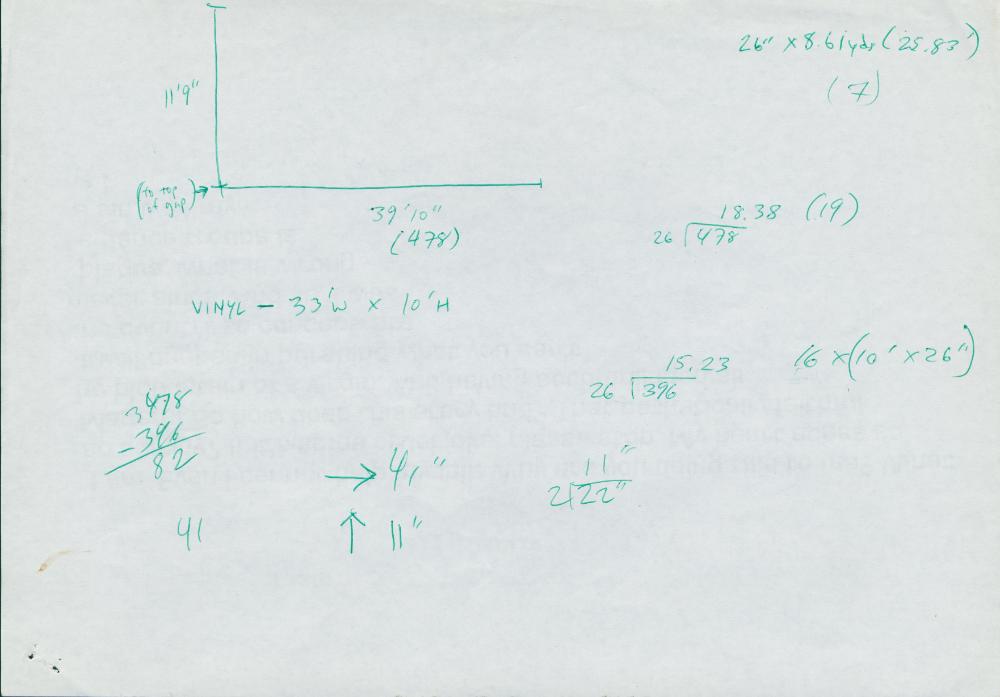 26" x 8.61yds (25.83')
(7)
11'9"
(to top
of gap)
39'10"
(478)
18.38 (19)
26 478
VINYL - 33'W x 10'H
15.23
26 396
16 x (10' x 26")
478
- 396
82
→ 41"
11"
2 22"
41
↑ 11"